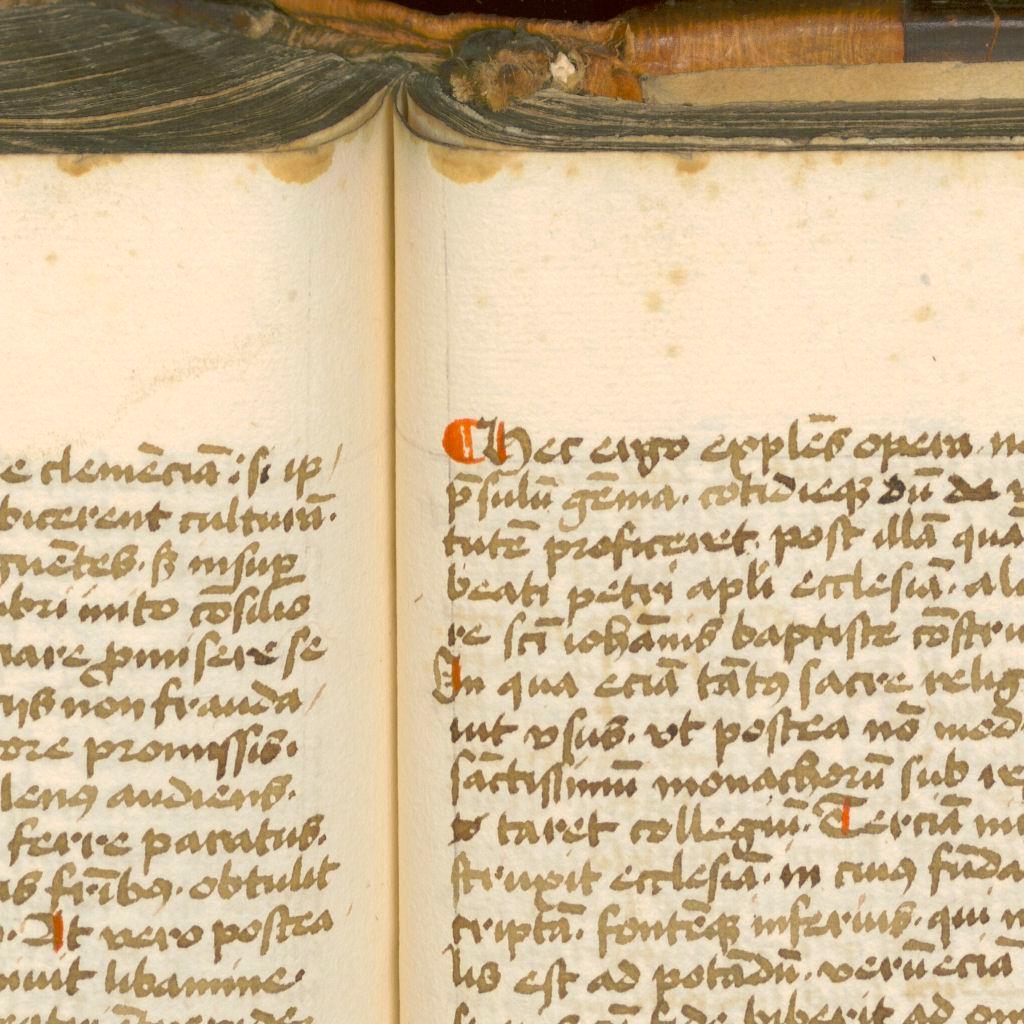 e clemēciā : si ip
bicerent culturā.
guētes. sꝫ insuꝑ
ibri inito cōsilio
nare ꝓmisere se
tijs non frauda
ore promissis.
lenꝰ audiens.
ferre paratus.
as frībꝰ. obtulit
At vero postea
libamine.
Hec ergo explēs opera.
p̄sulū gēma. cotidieqꝫ dū de
tutē proficeret. post illā quā
beati petri apli ecclesiā.
re scī iohānis baptiste cōstru
In qua eciā tātꝰ sacre relig
uit vsus. vt postea nō mod
sāctissimū monachorū sub re
taret collegiū. Terciā
struxit ecclesiā. in cuiꝰ fūda
criptā. fontēqꝫ inferius. qui
lis est ad potādū. verū eciā
biberit ad